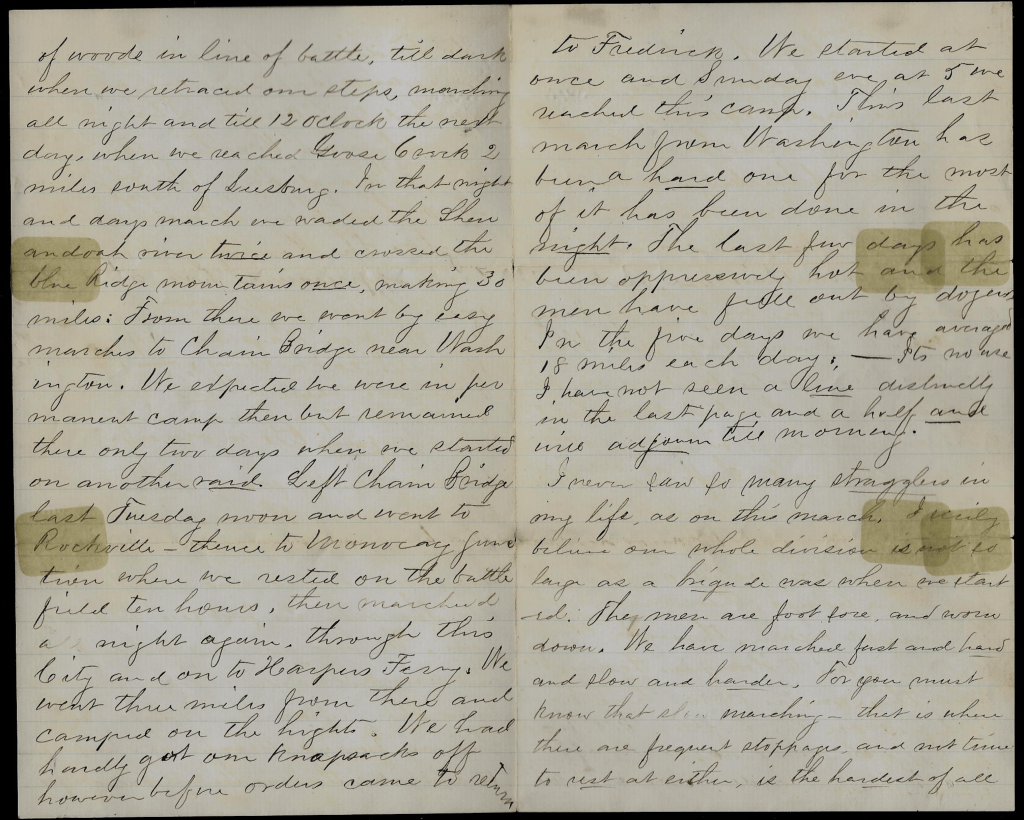 of woods in line of battle, till dark
when we retraced our steps, marching
all night and till 12 Oclock the next
day, when we reached Goose Creek 2
miles south of Leesburg. In that night
and days march we waded the Shen
andoah river twice and crossed the
blue Ridge mountains once, making 30
miles: From there we went by easy
marches to Chain Bridge near Wash
ington. We expected we were in per
manent camp then but remained
there only two days when we started
on another raid. Left Chain Bridge
last Tuesday noon and went to
Rockville – thence to Monocacy Junc
tion where we rested on the battle
field ten hours, then marched
a night again, through this
City and on to Harpers Ferry. We
went three miles from there and
camped on the hights. We had
hardly got our Knapsacks off
however before orders came to return
to Fredrick. We started at
once and Sunday eve, at 5 we
reached this camp. This last
march from Washington has
been a hard one for the most
of it has been done in the
night. The last few days has
been oppressively hot and the
men have fell out by dozens
In the five days we have averaged
18 miles each day; — Its no use
I have not seen a line distinctly
in the last page and a half and
will adjourn till morning.
I never saw so many stragglers in
my life, as on this march. I verily
believe our whole division is not so
large as a brigade was when we start
ed. They men are foot sore, and worn
down. We have marched fast and hard
and slow and harder. For you must
know that slow marching – that is where
there are frequent stoppages, and not time
to rest at either, is the hardest of all